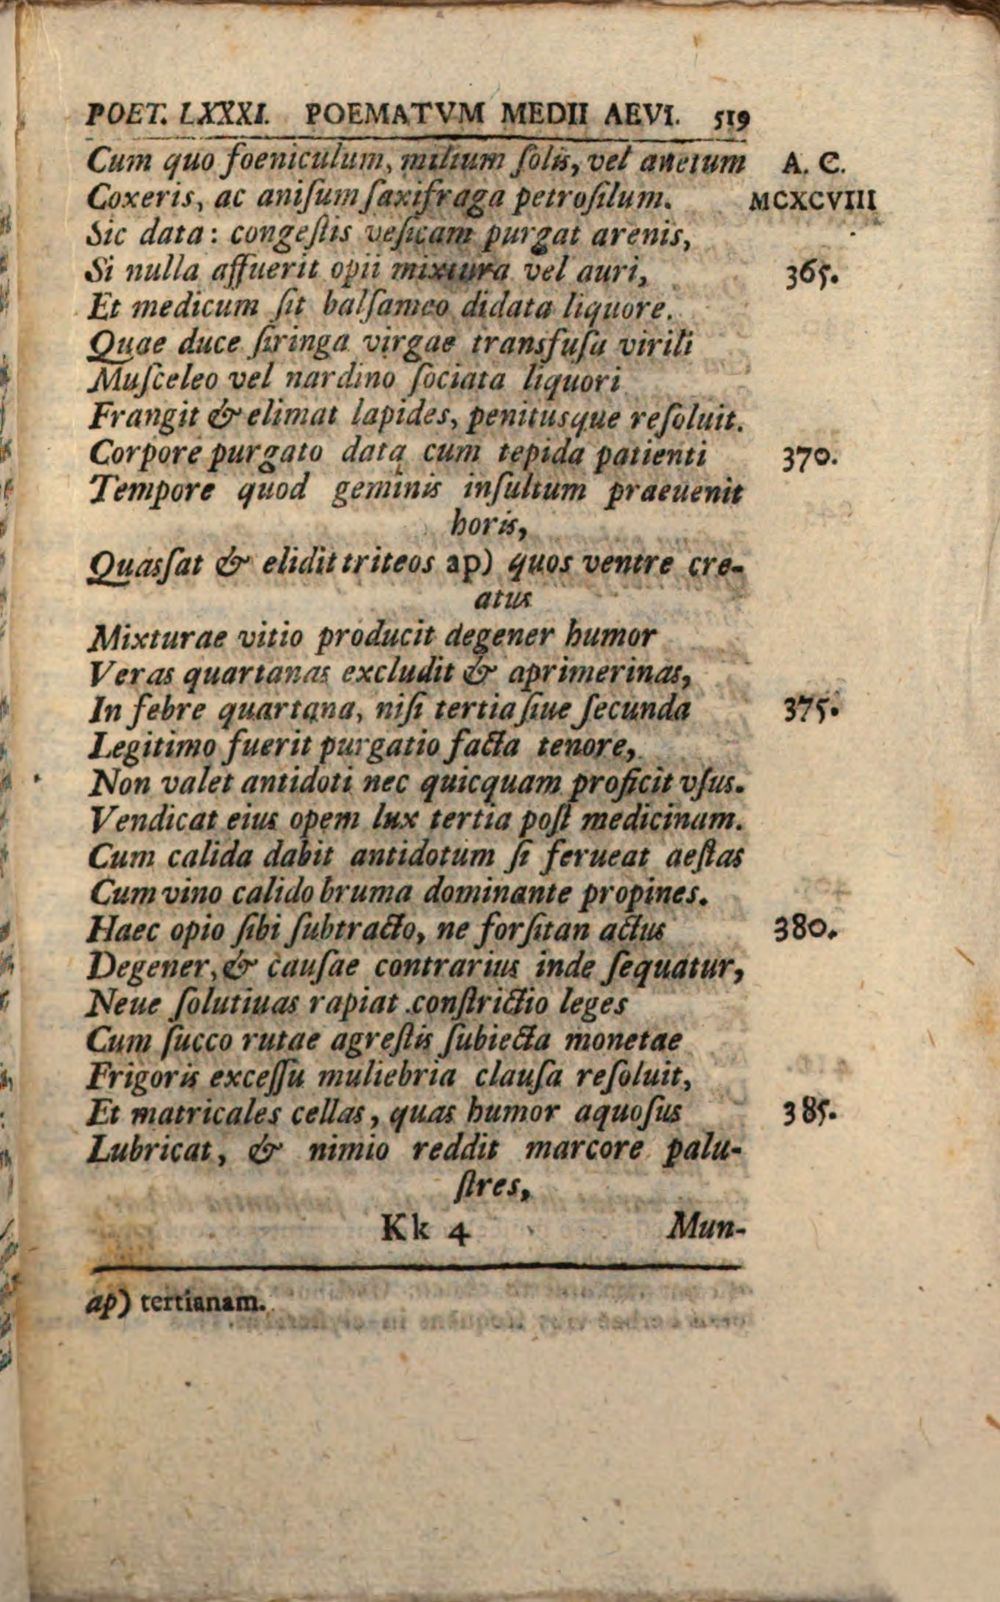 POET. LXXXI. POEMATVM MEDII AEVI. 519
Cum quo foeniculum, milium ſolis, vel anetum A. C.
Coxeris, ac aniſum ſaxifraga petroſilum. MCXCVIII
Sic data: congeſtis veſicam purgat arenis,
Si nulla affuerit opii mixtura vel auri, 365.
Et medicum ſit balſameo didata liquore.
Quae duce ſiringa virgae transfuſa virili
Muſceleo vel nardino ſociata liquori
Frangit & elimat lapides, penitusque reſoluit.
Corpore purgato data cum tepida patienti 370.
Tempore quod geminis inſultum praeuenit
horis,
Quasſat & elidit triteos ap) quos ventre cre-
atus
Mixturae vitio producit degener humor
Veras quartanas excludit & aprimerinas,
In febre quartana, niſi tertia ſiue ſecunda 375.
Legitimo fuerit purgatio facta tenore,
Non valet antidoti nec quicquam proficit vſus.
Vendicat eius opem lux tertia poſt medicinam.
Cum calida dabit antidotum ſi ferueat aeſtas
Cum vino calido bruma dominante propines.
Haec opio ſibi ſubtracto, ne forſitan actus 380.
Degener, & cauſae contrarius inde ſequatur,
Neue ſolutiuas rapiat conſtrictio leges
Cum ſucco rutae agreſtis ſubiecta monetae
Frigoris exceſſu muliebria clauſa reſoluit,
Et matricales cellas, quas humor aquoſus 385.
Lubricat, & nimio reddit marcore palu-
ſtres,
Kk 4 Mun-
ap) tertianam.